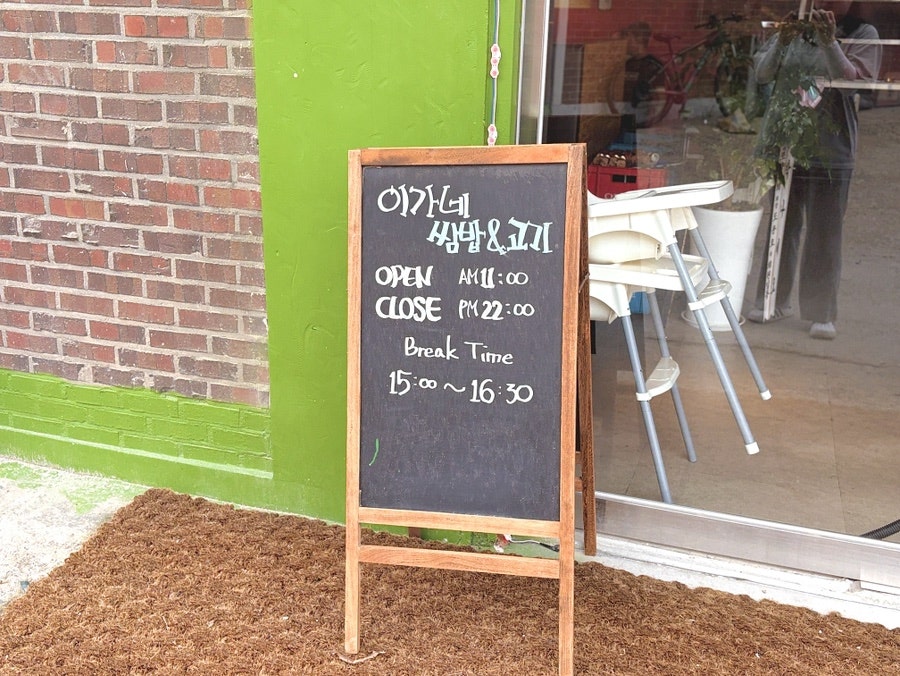 이가네
쌈밥&고기
OPEN AM 11:00
CLOSE PM 22:00
Break Time
15:00 ~ 16:30